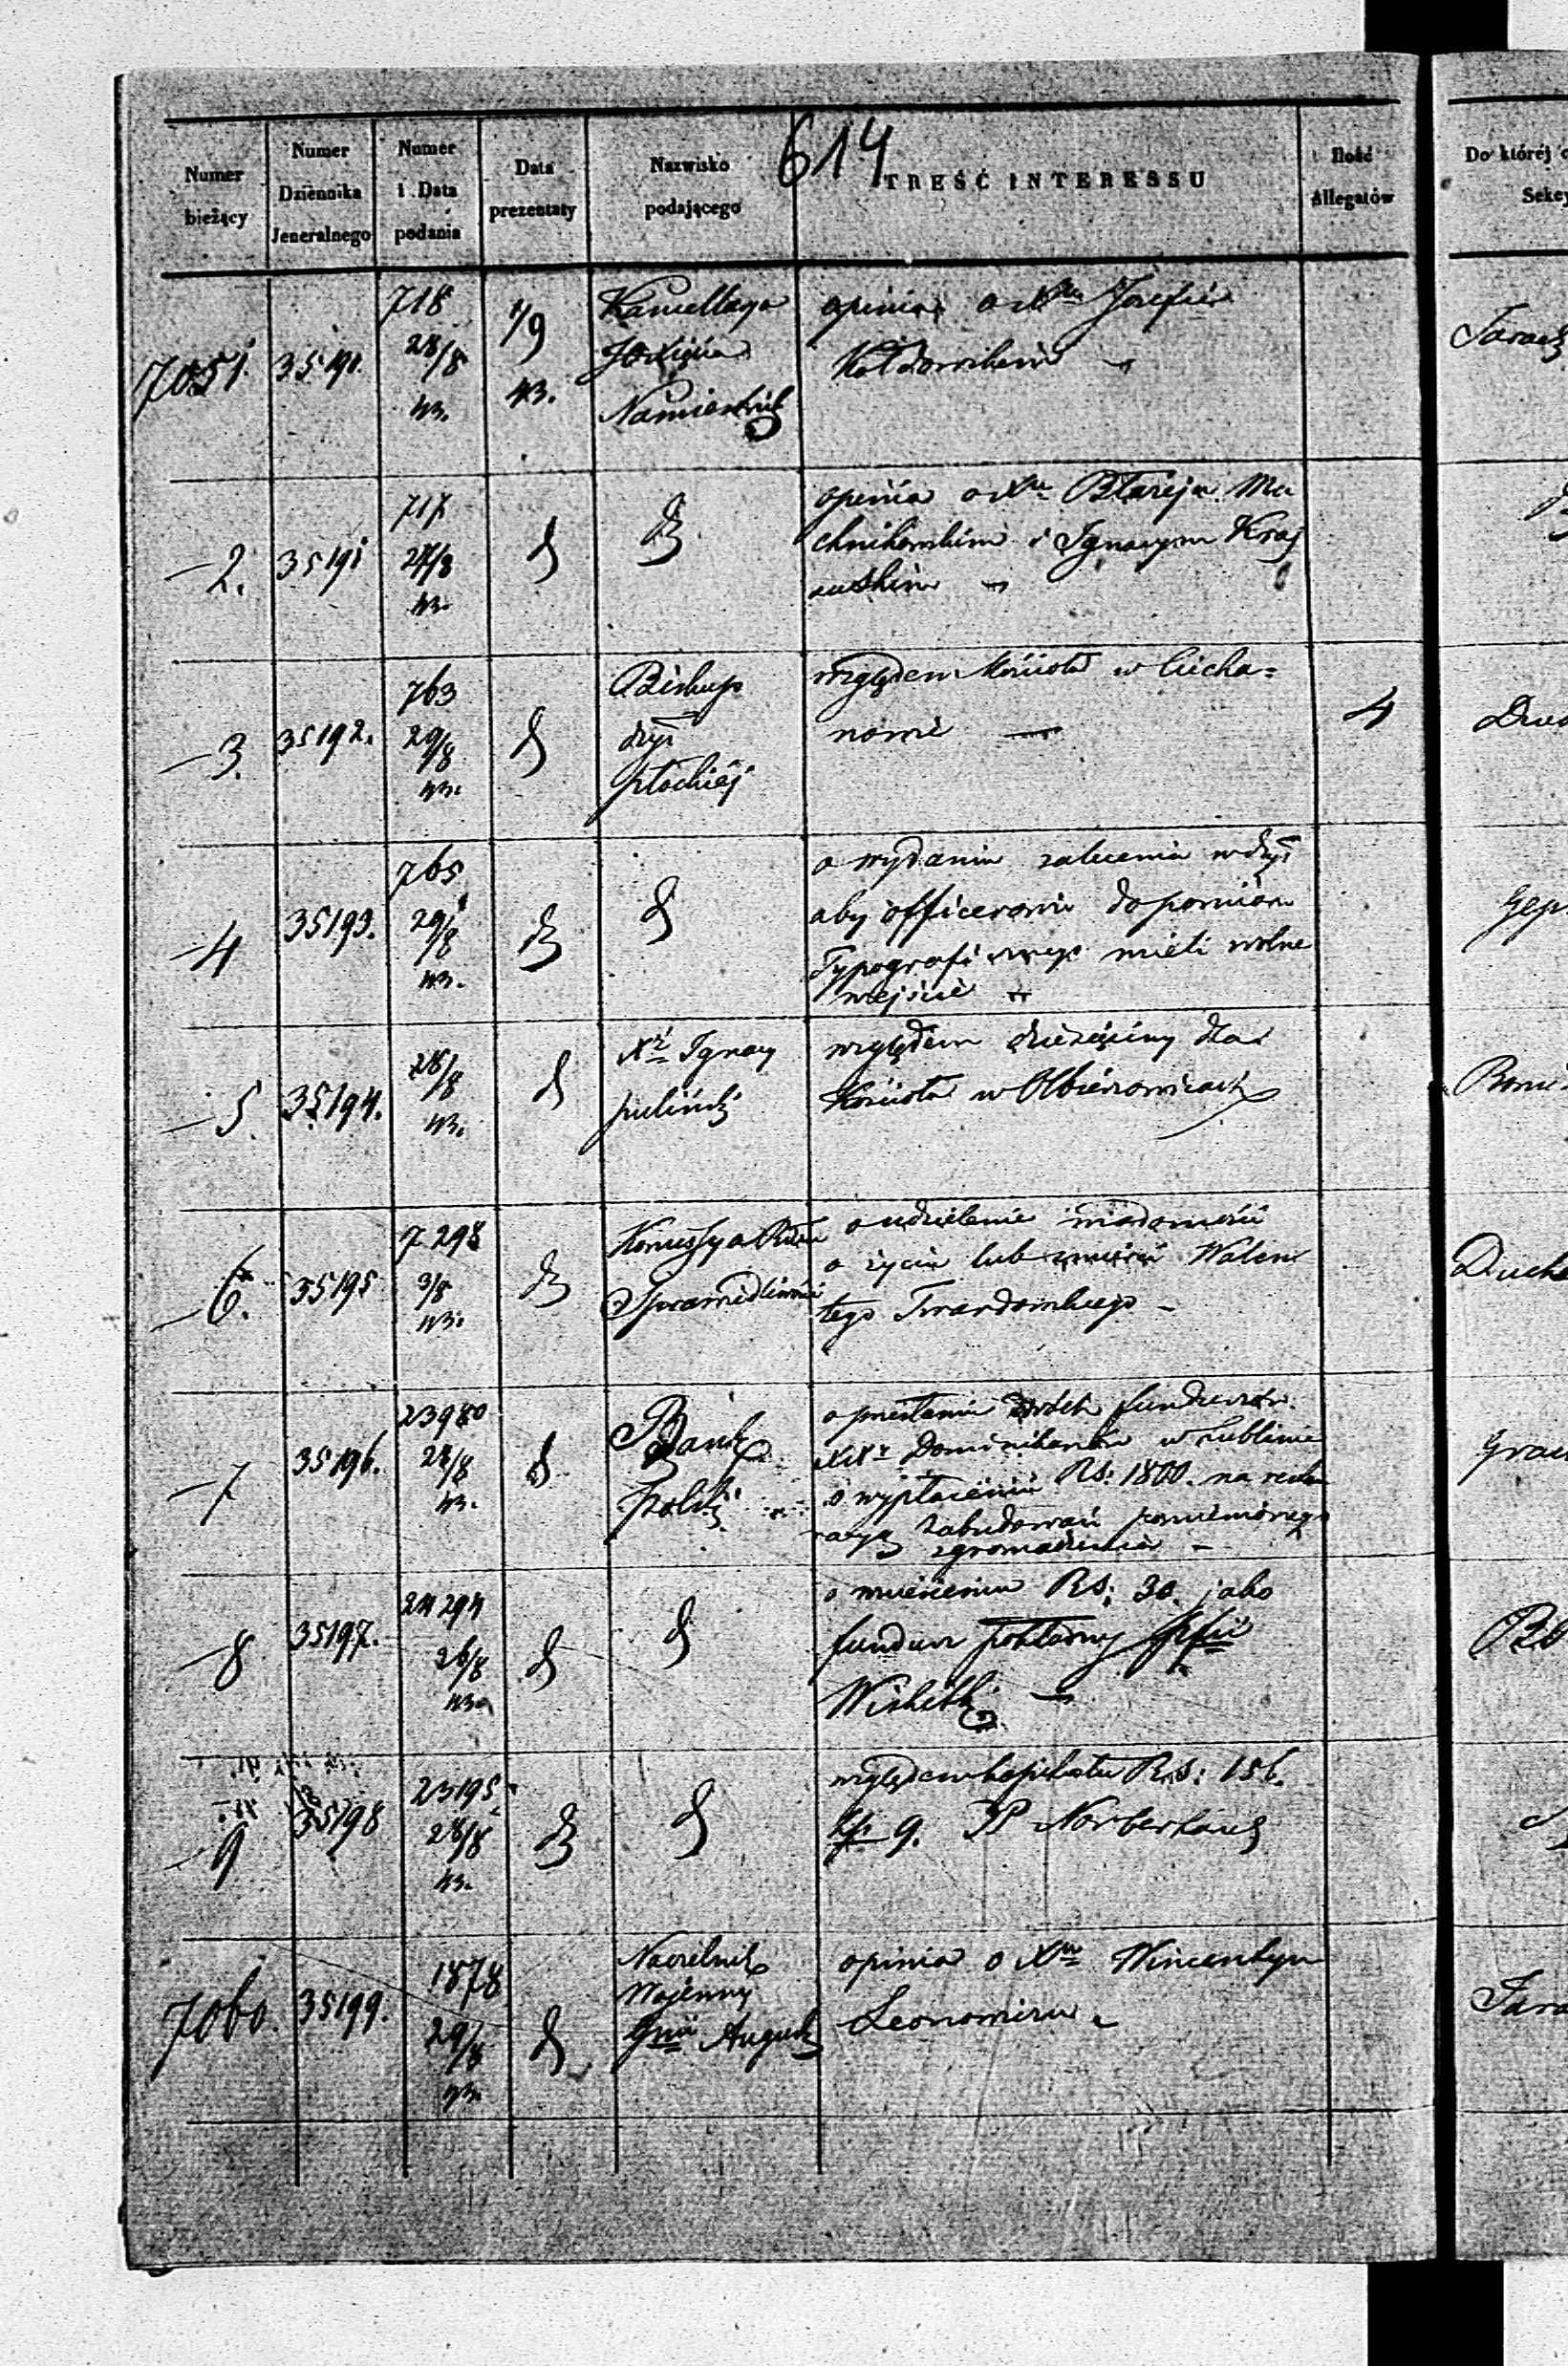 614
Numer bieżący
Numer Dziennika Jeneralnego
Numer i Data podania
Data prezentaty
Nazwisko podającego
TREŚĆ INTERESSU
Ilość Allegatów
Do któréj
Sekcy
7051
35190.
718
28/8
43.
1/9
43.
Kancellarya
Xięcia
Namiestnik
opinia o Xdu Józefie
2.
35191
717
28/8
43.
opinia o Xdu Błażeju Ma
chnikowskim i Ignacym Kraj
3.
35192.
763
29/8
43.
Biskup
dyi
płockiéj
względem Kościoła w Ciecha=
nowie
4
4
35193.
765
29/8
43.
o wydanie zalecenia w dyi
aby officerowie do pomiaru
Typografi mieli wolne
wejście
5.
35194.
28/8
43.
Xdz Ignacy
względem dziesięciny dla
Kościoła w Olbierzowicach
6.
35195
7298
3/8
43.
Komissya Rdu
Sprawiedliwości
o udzielenie wiadomości
o życiu lub śmierci Walen
tego Twardowskiego
Duch
7
35196.
23980
28/8
43.
Bank
Polski
o przesłanie dwóch funduszów
XX. Dominikanów w Lublinie
o wypłacenie Rs: 1800. na repa
racyą zabudowań pomienionego
zgromadzenia
8
35197.
24294
26/8
43.
o wniesieniu Rs: 30. jako
fundusz pokładny
9
35198
23195
28/8
43.
względem kapitału Rs: 156.
9. PP Norbertanek
7060.
35199.
1878
29/8
43.
Naczelnik
Wojenny
Gnii August
opinia o Xdu Wincentym
Leonowiczu